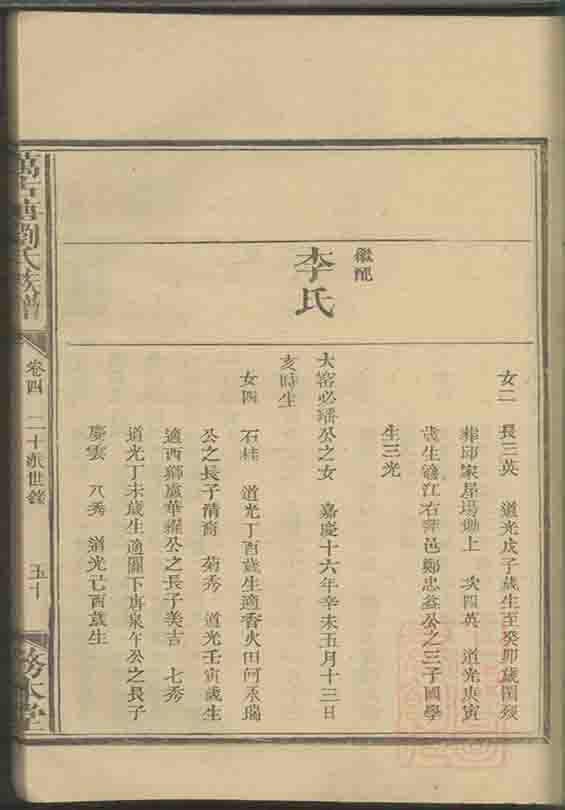 女二 長三英 道光戊子歲生至癸卯歲閏歿
葬邱家屋場墈上 次四英 道光庚寅
歲生適江右萍邑鄭忠益公之三子國學
生三光
繼配
李氏
大窰必璠公之女 嘉慶十六年辛未五月十三日
亥時生
女四 石桂 道光丁酉歲生適香火田何丞瑞
公之長子清裔 菊秀 道光壬寅歲生
適西獅盧華耀公之長子美吉 七秀
道光丁未歲生適關下唐泉午公之長子
慶雲 八秀 道光己酉歲生
萬古塘劉氏族譜
卷四 二十派世錄 五十
務本堂